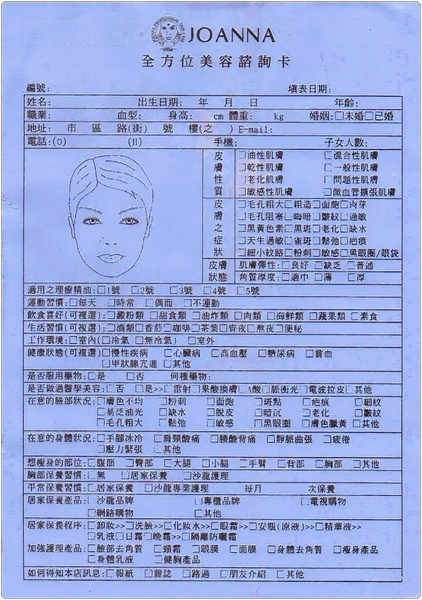 JOANNA
全方位美容諮詢卡
編號: 填表日期:
姓名: 出生日期: 年 月 日 年齡:
職業: 血型: 身高: cm 體重: kg 婚姻:□未婚□已婚
地址: 市 區 路(街) 號 樓(之 ) E-mail:
電話:(O) (H) 手機: 子女人數:
皮膚性質 □油性肌膚 □混合性肌膚
□乾性肌膚 □一般性肌膚
□老化肌膚 □問題性肌膚
□敏感性肌膚 □微血管擴張肌膚
皮膚之症狀 □毛孔粗大□粗造□面皰□肉芽
□毛孔阻塞□晦暗□皺紋□過敏
□黑黃色素□黑斑□老化□缺水
□天生過敏□雀斑□鬆弛□疤痕
□細小紋路□粉刺□敏感□黑眼圈/眼袋
皮膚狀態 肌膚彈性:□良好 □缺乏 □普通
角質厚度:□適中□薄 □厚
適用之理療精油:□1號 □2號 □3號 □4號 □5號
運動習慣:□每天 □時常 □偶而 □不運動
飲食喜好(可複選):□澱粉類 □甜食類 □油炸類□肉類 □海鮮類 □蔬果類 □素食
生活習慣(可複選):□酒類□香菸□咖啡□茶葉□宵夜□熬夜□便秘
工作環境:□室內(□冷氣 □無冷氣) □室外
健康狀態(可複選):□慢性疾病 □心臟病 □高血壓 □糖尿病 □貧血
□甲狀腺亢進 □其他
是否服用藥物: □是 □否 何種藥物:
是否做過醫學美容: □否 □是>>□雷射 □果酸換膚 □A酸 □脈衝光 □電波拉皮□其他
在意的臉部狀況:□膚色不均 □粉刺 □面皰 □斑點 □疤痕 □細紋
□易泛油光 □缺水 □脫皮 □暗沉 □老化 □皺紋
□毛孔粗大 □鬆弛 □敏感 □黑眼圈 □膚色臘黃 □其他
在意的身體狀況:□手腳冰冷 □肩頸酸痛 □腰酸背痛 □靜脈曲張 □疲倦
□壓力緊張 □其他
想瘦身的部位:□腹部 □臀部 □大腿 □小腿 □手臂 □背部 □胸部 □其他
胸部保養習慣:□無 □居家保養 □沙龍護理
平常保養習慣:□居家保養 □沙龍專業護理 每月 次保養
居家保養產品:□沙龍品牌 □專櫃品牌 □電視購物
□網路購物 □其他
居家保養程序:□卸妝>>□洗臉>>□化妝水>>□眼霜>>□安瓶(原液)>>□精華液>>
□乳液□日霜□晚霜>>□隔離防曬霜
加強護理產品:□臉部去角質 □頸霜 □眼膜 □面膜 □身體去角質 □瘦身產品
□身體乳液 □健胸產品
如何得知本店訊息:□報紙 □雜誌 □路過 □朋友介紹 □其他